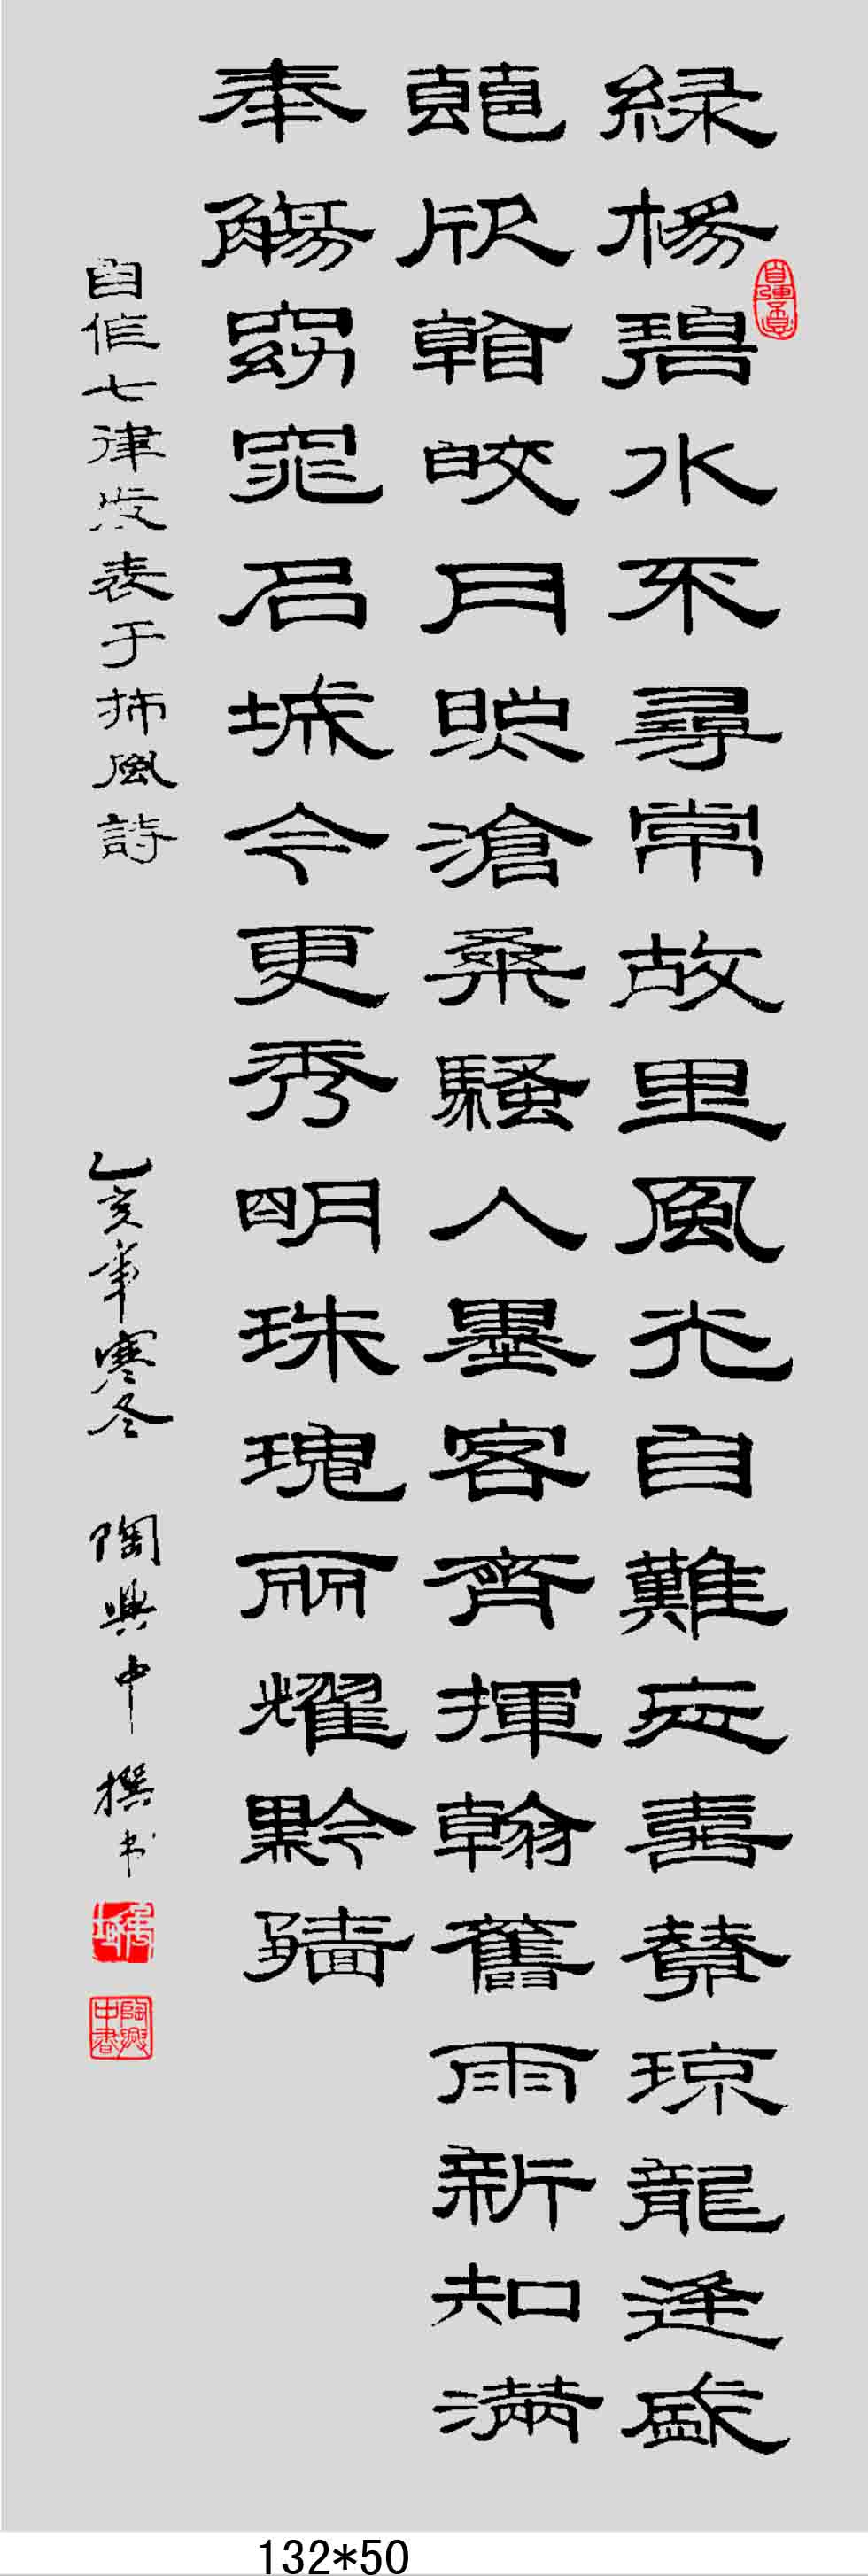 緑楊碧水不尋常故里風光自難忘喜贊琼龍逢盛
欣皎月照滄桑騷人墨客齊揮翰舊雨新知滿
奉觴窈窕名城今更秀明珠瑰丽耀黔
自作七律发表于風詩 乙亥年寒冬 陶興中撰书
陶興中書
132*50